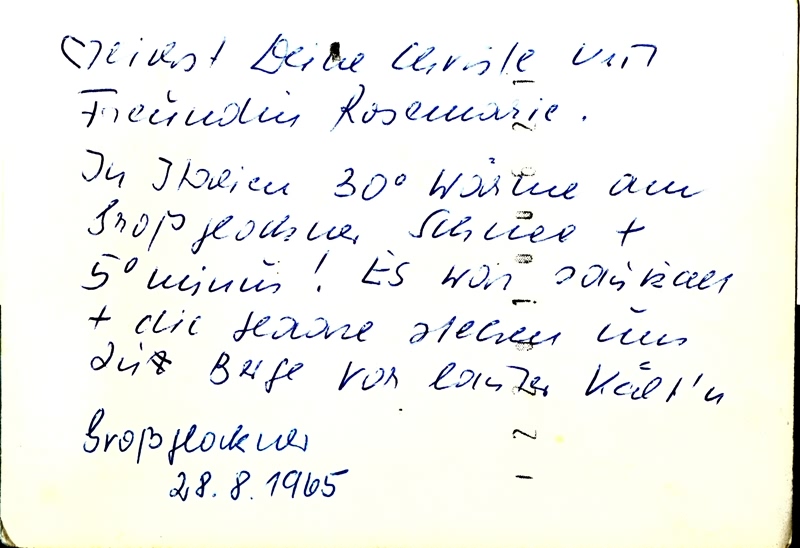 Deine Christl mit
Freundin Rosemarie.
In Italien 30° Wärme am
Großglockner Schnee +
5° minus! Es war saukalt
+ die Haare stehen uns
zu Berge vor lauter Kält'n
Großglockner
28.8.1965